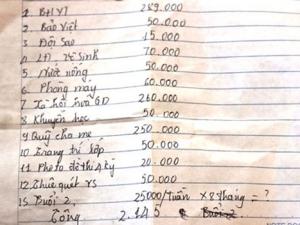 1. BHYT 289.000
2. Bảo Việt 50.000
3. Đội Sao 15.000
4 LĐ, vệ sinh 70.000
5. Nước uống 50.000
6. Phòng máy 60.000
7 Xã hội hoá GD 260.000
8 Khuyến học 50.000
9 Quỹ cha mẹ 250.000
10 Trang trí lớp 50.000
11 Photo đề thi 4 kỳ 20.000
12. Thuê quét vs 50.000
13 Buổi 2, 25000/tuần x 8 tháng = ?
Tổng 2.145 Buổi 2